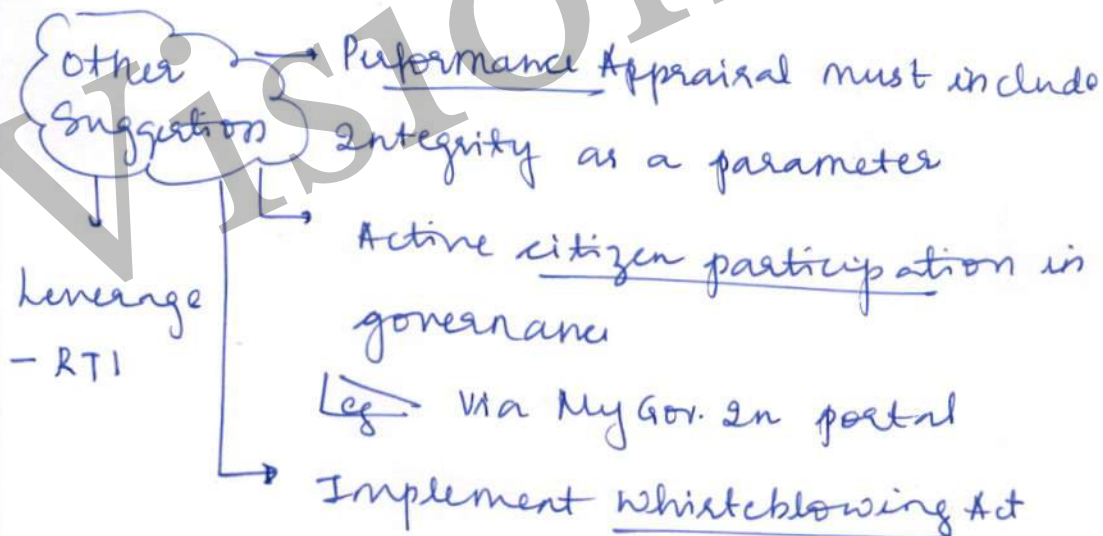 Other
Suggestion
Performance Appraisal must include
Integrity as a parameter
Active citizen participation in
governance
Leverage
- RTI
eg via MyGov.In portal
Implement Whisteblowing Act
Vision